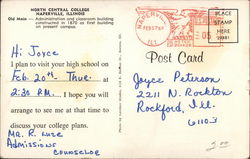 NORTH CENTRAL COLLEGE
NAPERVILLE, ILLINOIS
Old Main — Administration and classroom building
constructed in 1870 as first building
on present campus.
NAPERVILLE
FEB 57 67
ILL
05
PLACE
STAMP
HERE
Post Card
Hi Joyce
I plan to visit your high school on
Feb 20th Thur. at
2:30 P.M... I hope you will
arrange to see me at that time to
discuss your college plans.
Mr. R. Luze
Admissions
Counselor
Joyce Peterson
2211 N. Rockton
Rockford, Ill.
61103
3.00